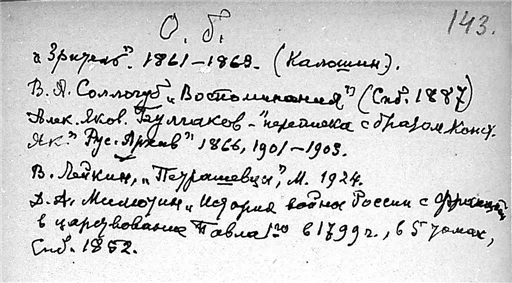 О. б.
143.
„Зритель“. 1861–1863. (Калошин).
В. А. Соллогуб „Воспоминания“ (Спб. 1887)
Алек. Яков. Булгаков – "переписка с братом Конст.
Як." „Рус. Архив“ 1866, 1901–1903.
В. Лейкин, „Петрашевцы“, М. 1924.
Д. А. Милютин „История войны России с Францией
в царствование Павла I-го в 1799 г., в 5 томах,
Спб. 1852.